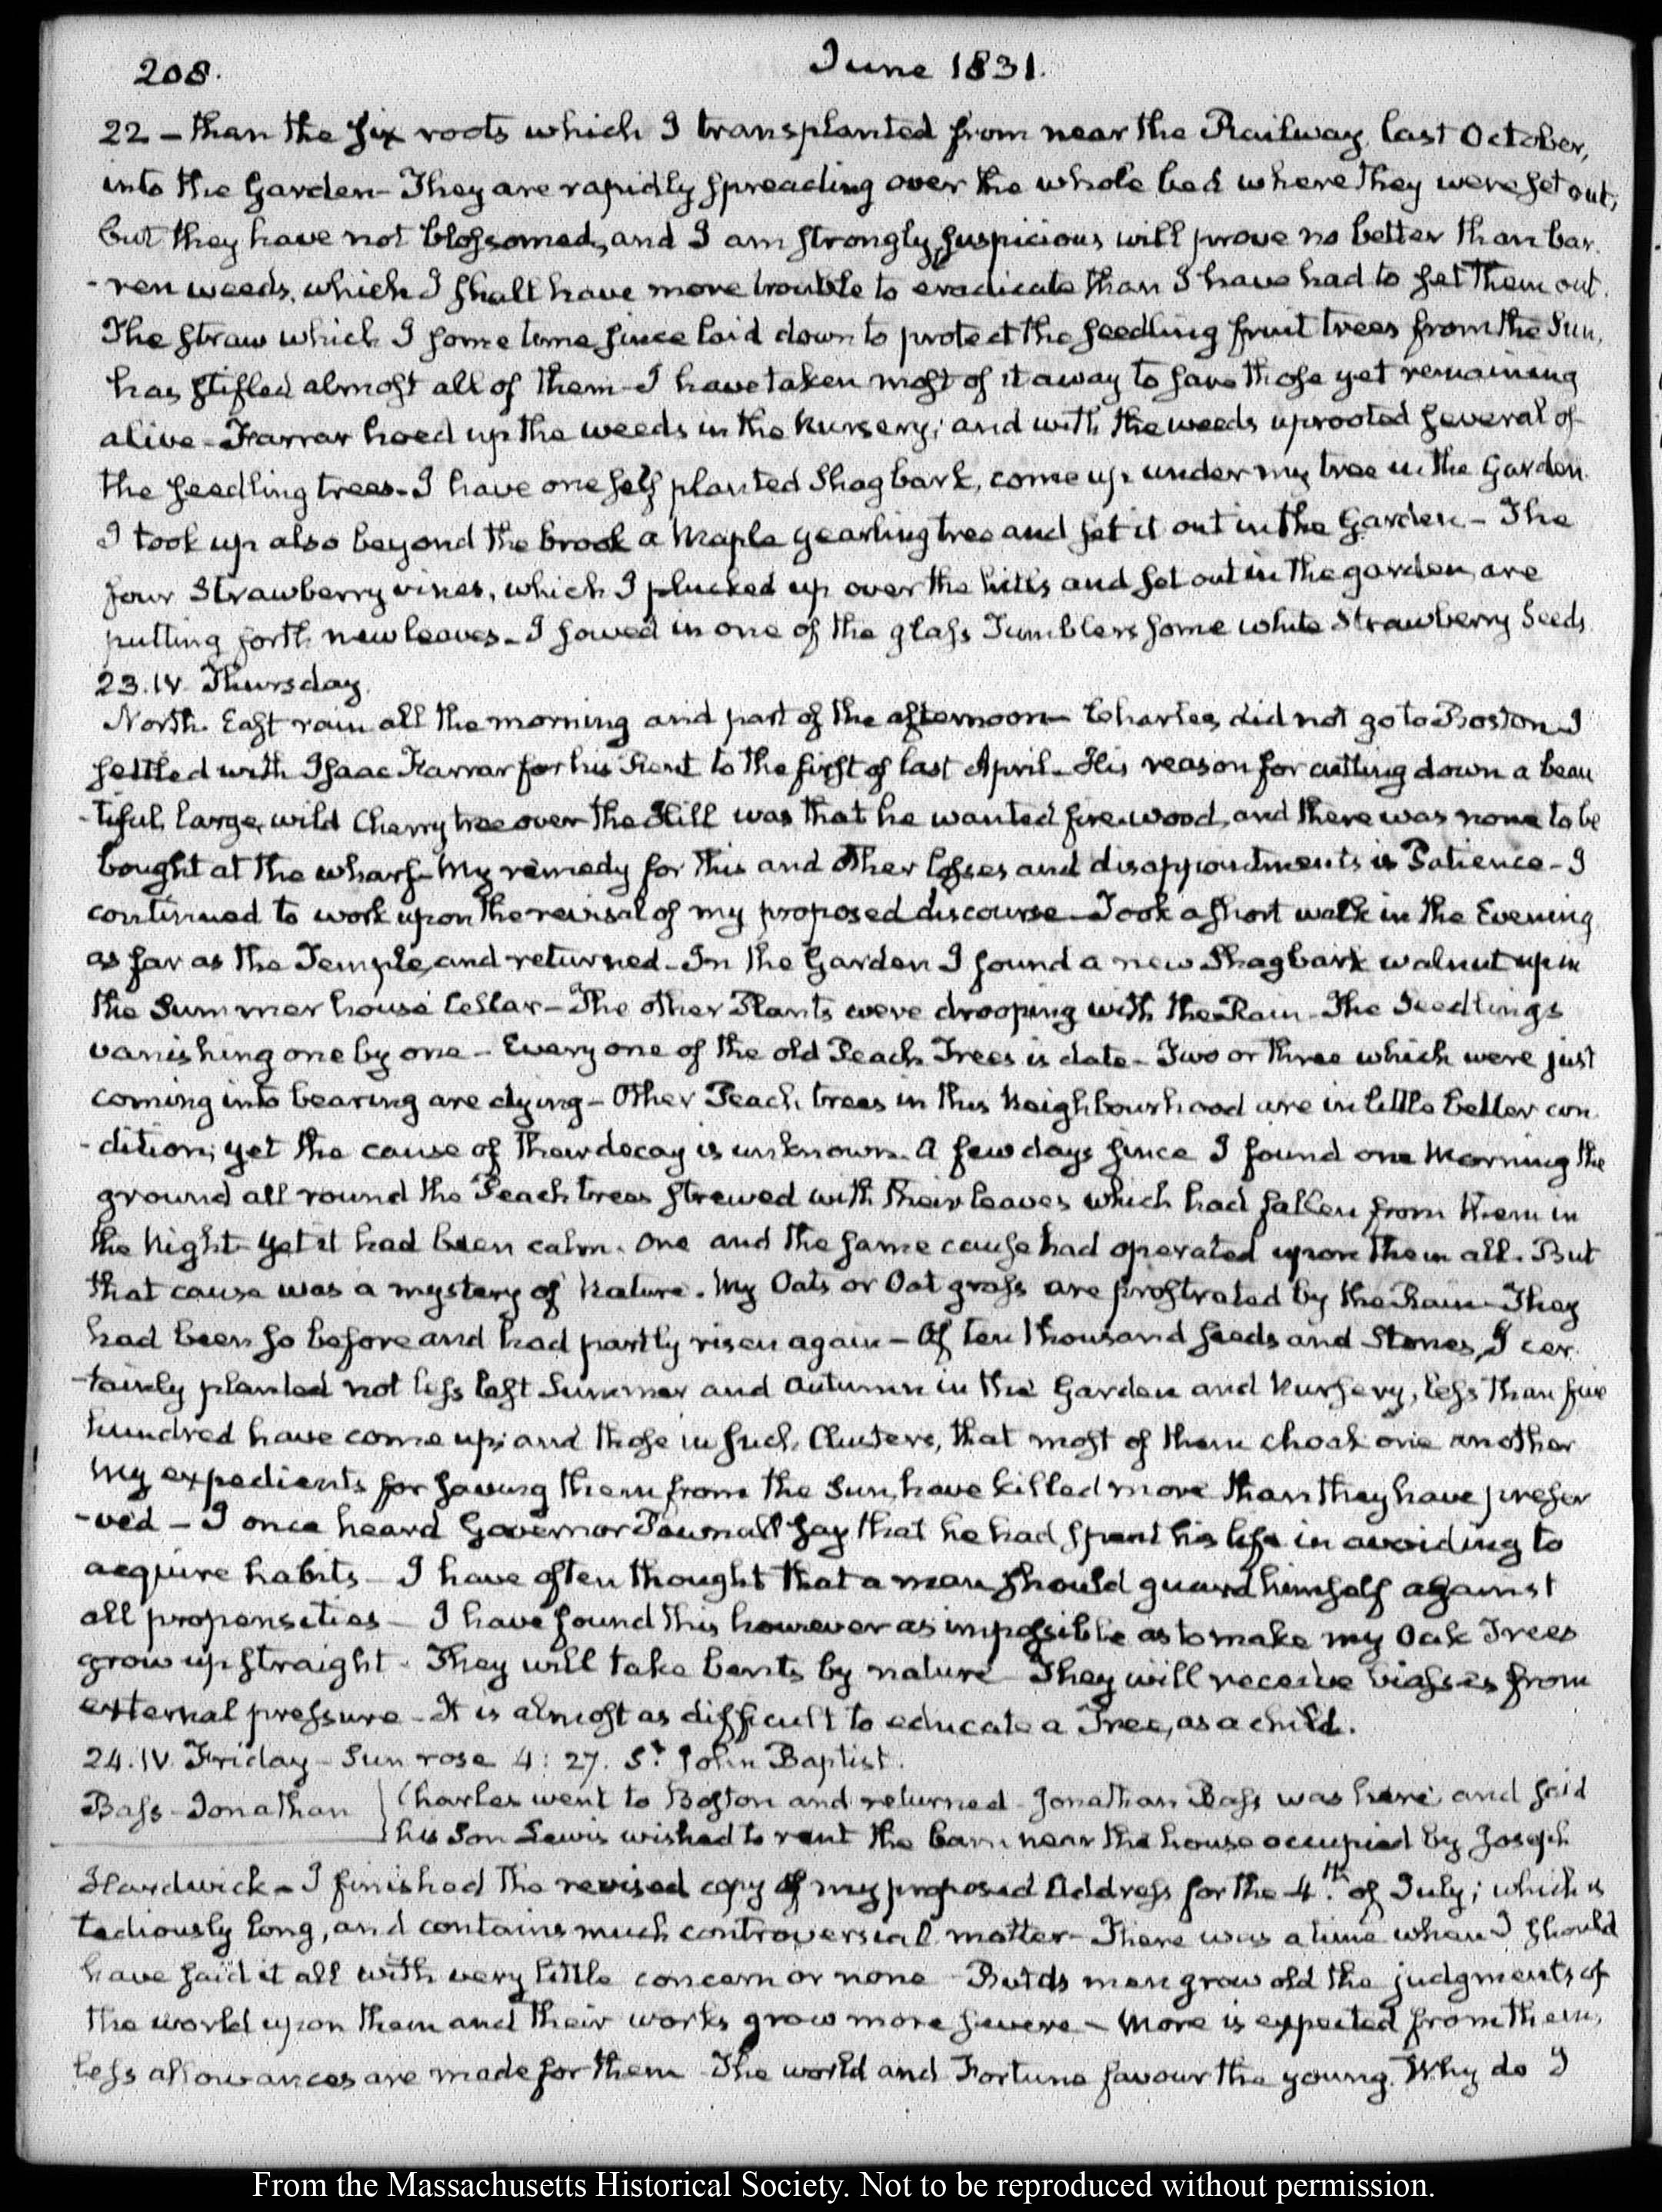 208.
June 1831.
22 – than the six roots which I transplanted from near the Railway last October,
into the Garden – They are rapidly spreading over the whole bed where they were set out;
but they have not blossomed, and I am strongly suspicious will prove no better than bar-
-ren weeds, which I shall have more trouble to eradicate than I have had to set them out.
The straw which I some time since laid down to protect the seedling fruit trees from the Sun,
has stifled almost all of them – I have taken most of it away to save those yet remaining
alive – Farrar hoed up the weeds in the Nursery; and with the weeds uprooted several of
the seedling trees – I have one self planted Shagbark, come up under my tree in the Garden.
I took up also beyond the brook a Maple yearling tree and set it out in the Garden – The
four Strawberry vines, which I plucked up over the hills and set out in the garden, are
putting forth new leaves – I sowed in one of the glass Tumblers some white Strawberry Seeds
23. IV. Thursday.
North. East rain all the morning and part of the afternoon – Charles did not go to Boston. I
settled with Isaac Farrar for his Rent to the first of last April – His reason for cutting down a beau
-tiful, large, wild Cherry tree over the Hill was that he wanted fire-wood, and there was none to be
bought at the wharf – My remedy for this and other losses and disappointments is Patience – I
continued to work upon the revisal of my proposed discourse – Took a short walk in the Evening
as far as the Temple, and returned – In the Garden I found a new Shagbark walnut up in
the Summer house Cellar – The other Plants were drooping with the Rain – The Seedlings
vanishing one by one – Every one of the old Peach Trees is date – Two or three which were just
coming into bearing are dying – Other Peach trees in this Neighbourhood are in little better con
-dition; yet the cause of their decay is unknown. A few days since I found one Morning the
ground all round the Peach trees strewed with their leaves which had fallen from them in
the Night – yet it had been calm. One and the same cause had operated upon them all. But
that cause was a mystery of Nature. My Oats or Oat grass are prostrated by the Rain – They
had been so before and had partly risen again – Of ten thousand seeds and Stones, I cer
-tainly planted not less last Summer and Autumn in the Garden and Nursery, less than five
hundred have come up; and those in such Clusters, that most of them choak one another
My expedients for saving them from the Sun, have killed more than they have preser
-ved – I once heard Governor Pownall say that he had spent his life in avoiding to
acquire habits – I have often thought that a man should guard himself against
all propensities – I have found this however as impossible as to make my Oak Trees
grow up straight – They will take bents by nature – They will receive biasses from
external pressure – It is almost as difficult to educate a Tree, as a child.
24. IV. Friday – Sun rose 4: 27. St. John Baptist.
Bass – Jonathan
Charles went to Boston and returned – Jonathan Bass was here, and said
his Son Lewis wished to rent the barn near the house occupied by Joseph
Hardwick – I finished the revised copy of my proposed Address for the 4th. of July; which is
tediously long, and contains much controversial matter – There was a time when I should
have said it all with very little concern or none – But as men grow old the judgments of
the world upon them and their works grow more severe – More is expected from them,
less allowances are made for them – The world and Fortune favour the young. Why do I
From the Massachusetts Historical Society. Not to be reproduced without permission.